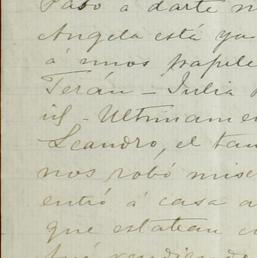 Paso á darte n
Angela está ya
á unos papele
Terán - Julia
Ultimamen
Leandro, el tan
nos robó mise
entró á casa a
que estaban